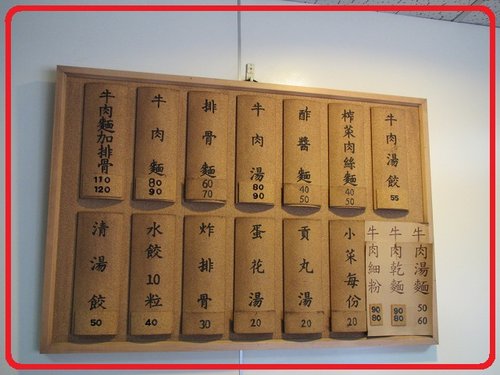 牛肉麵加排骨
110
120
牛肉麵
80
90
排骨麵
60
70
牛肉湯
80
90
酢醬麵
40
50
榨菜肉絲麵
40
50
牛肉湯餃
55
清湯餃
50
水餃10粒
40
炸排骨
30
蛋花湯
20
貢丸湯
20
小菜每份
20
牛肉細粉
90
80
牛肉乾麵
90
80
牛肉湯麵
50
60